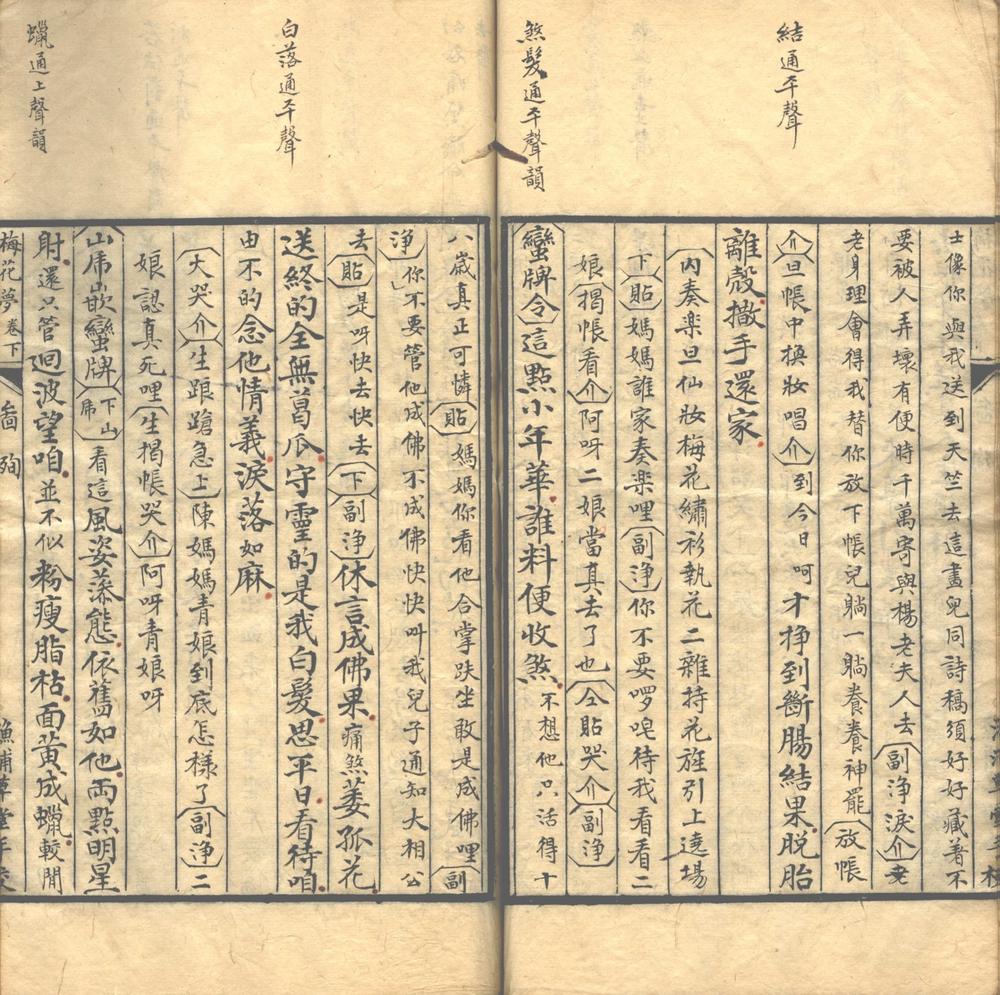 結通平聲
煞髮通平聲韻
士像你與我送到天竺去這畫兒同詩稿須好好藏著不
要被人弄壞有便時千萬寄與楊老夫人去副淨淚介老
老身理會得我替你放下帳兒躺一躺養養神罷放帳
介旦帳中換妝唱介到今日呵才掙到斷腸結果脫胎
離殼撒手還家
內奏樂旦仙妝梅花繡衫執花二雜持花旌引上遶場
下貼媽媽誰家奏樂哩副淨你不要啰唣待我看看二
娘揭帳看介阿呀二娘當真去了也仝貼哭介副淨
蠻牌令這點小年華誰料便收煞不想他只活得十
白落通平聲
蠟通上聲韻
八歲真正可憐貼媽媽你看他合掌趺坐敢是成佛哩副
淨你不要管他成佛不成佛快快叫我兒子通知大相公
去貼是呀快去快去下副淨休言成佛果痛煞萎孤花
送終的全無葛瓜守靈的是我白髮思平日看待咱
由不的念他情義淚落如麻
大哭介生踉蹌急上陳媽媽青娘到底怎樣了副淨二
娘認真死哩生揭帳哭介阿呀青娘呀
山乕嵌蠻牌下山乕看這風姿蕩態依舊如他兩點明星
射還只管迴波望咱並不似粉瘦脂枯面黃成蠟較閒
梅花夢 卷下 殉 漁浦草堂